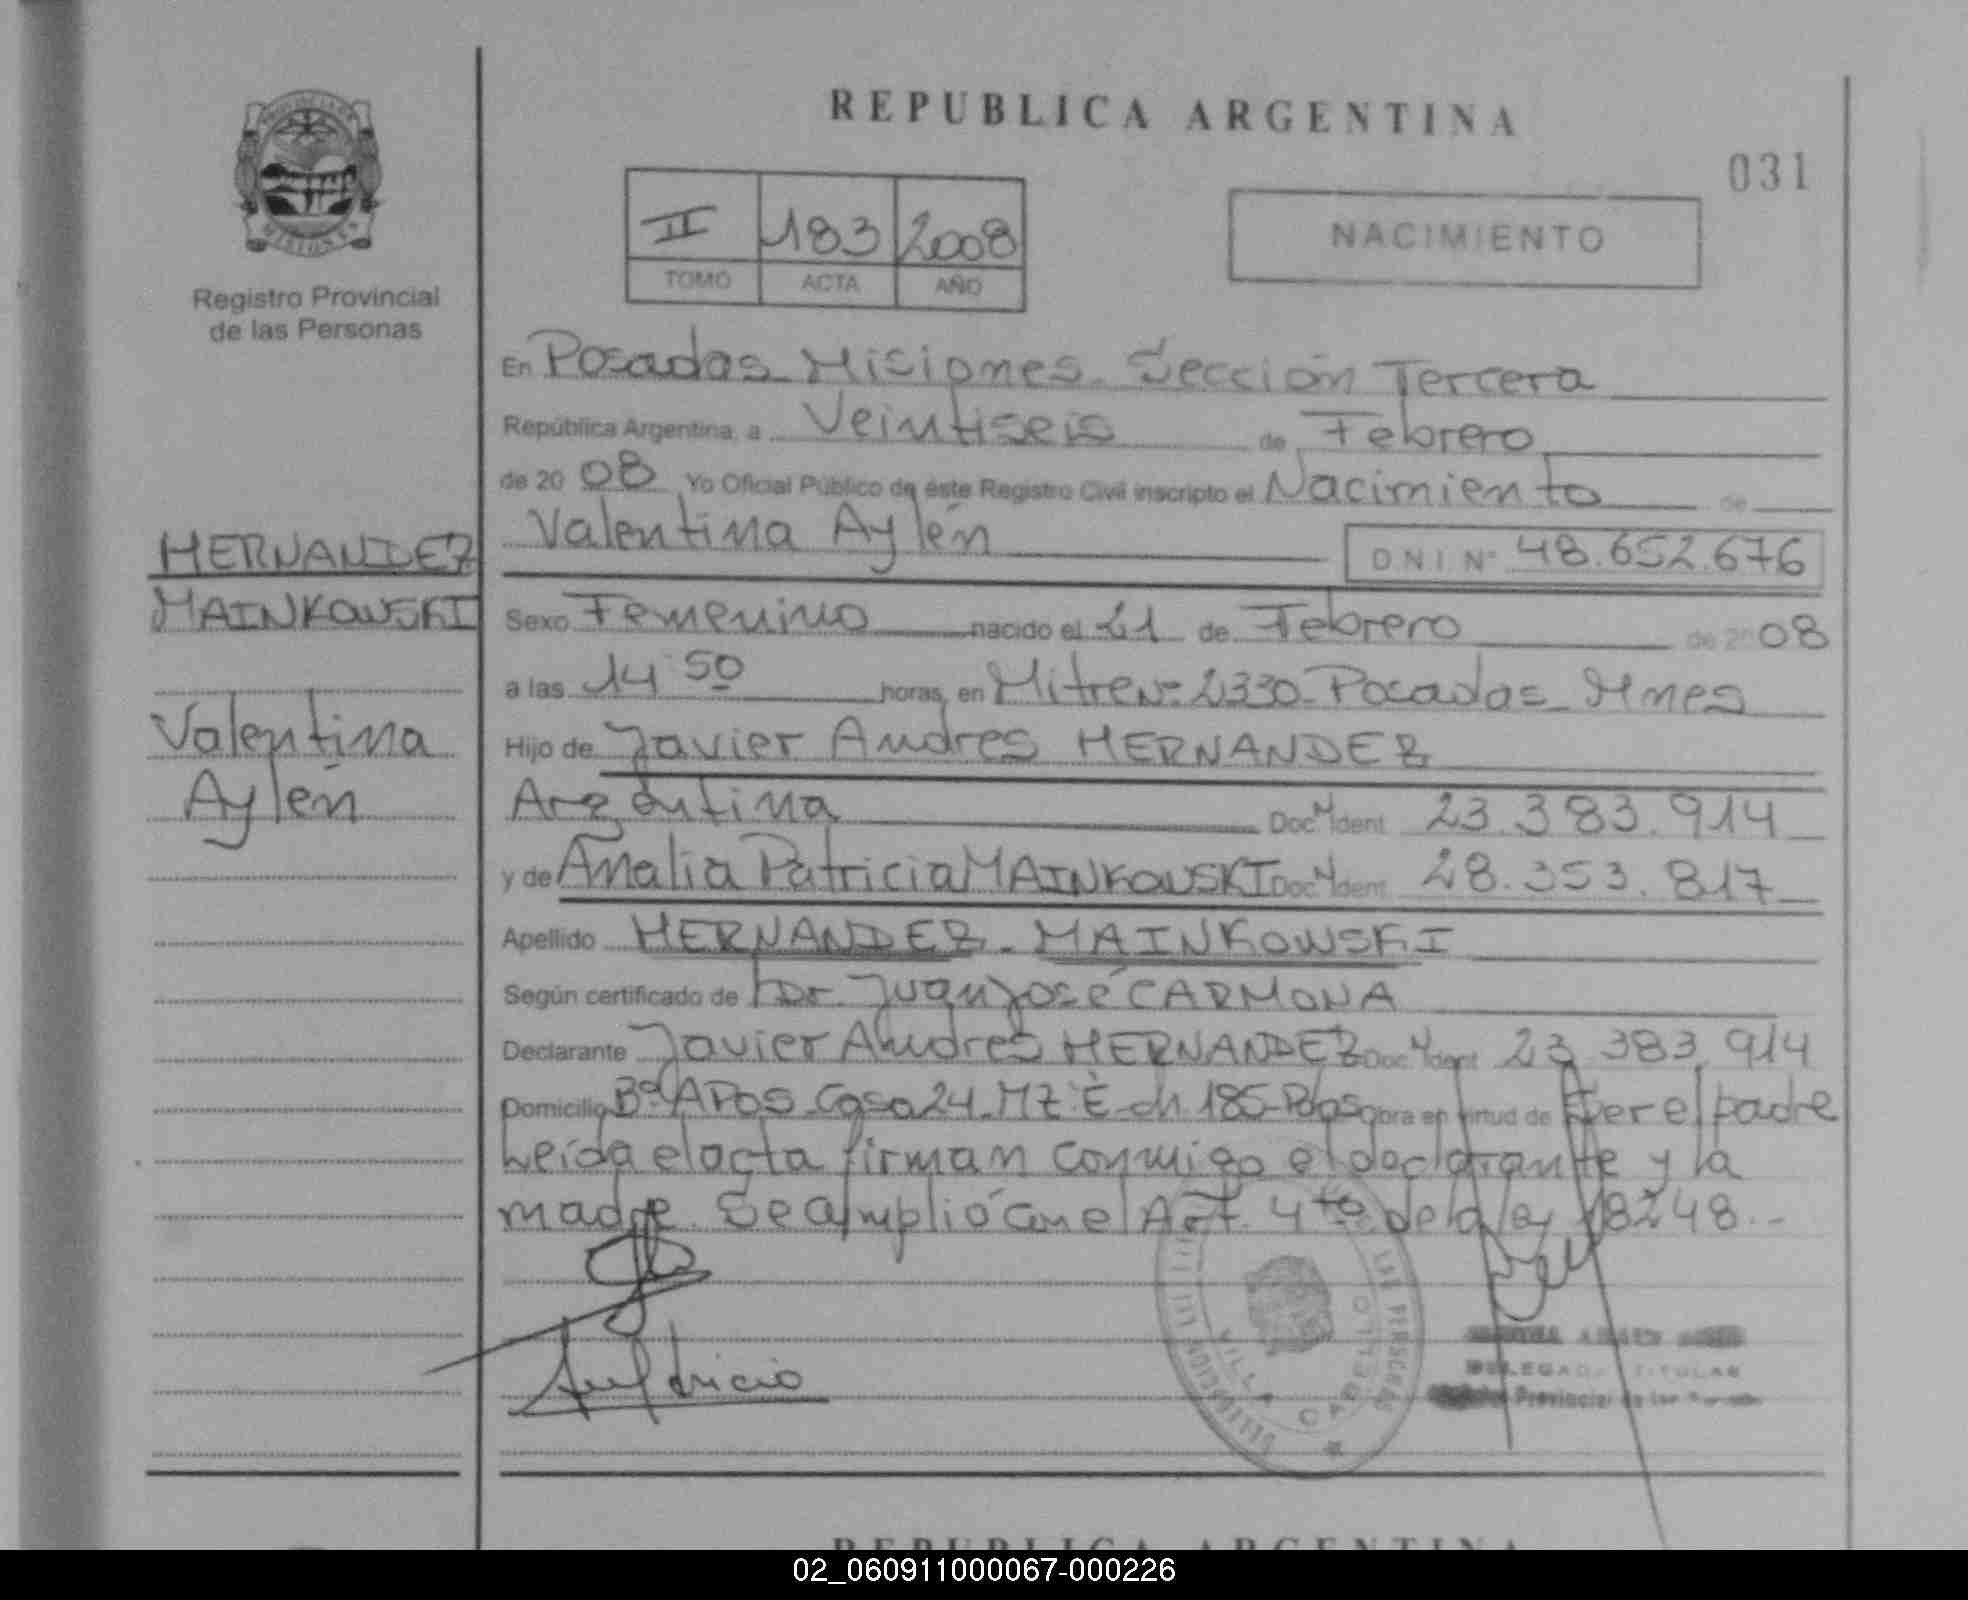 REPUBLICA ARGENTINA
031
II 183 2008
TOMO ACTA AÑO
NACIMIENTO
Registro Provincial
de las Personas
En Posadas Misiones. Sección Tercera
República Argentina, a Veintiseis de Febrero
de 20 08 Yo Oficial Público de éste Registro Civil inscripto el Nacimiento de
Valentina Aylén D N I Nº 48.652.676
HERNANDEZ
MAINKOWSKI
Valentina
Aylén
Sexo Femenino nacido el 21 de Febrero de 20 08
a las 14 50 horas, en Mitre Nº 2330 Posadas Mnes
Hijo de Javier Andres HERNANDEZ
Argentina Doc. Ident. 23.383.914
y de Analia Patricia MAINKOWSKI Doc. Ident. 28.353.817
Apellido HERNANDEZ - MAINKOWSKI
Según certificado de Dr. Juan José CARMONA
Declarante Javier Andres HERNANDEZ Doc. Ident 23.383.914
Domicilio Bº APOS Casa 24 MZ E ch 185 Pdas Obra en virtud de Ser el padre
Leída el acta firman conmigo el declarante y la
madre. Se amplió con el Art. 4to de la ley 18248.-
VILLA CABELLO
DELEGADA TITULAR
Provincial de las
REPUBLICA ARGENTINA
02_060911000067-000226